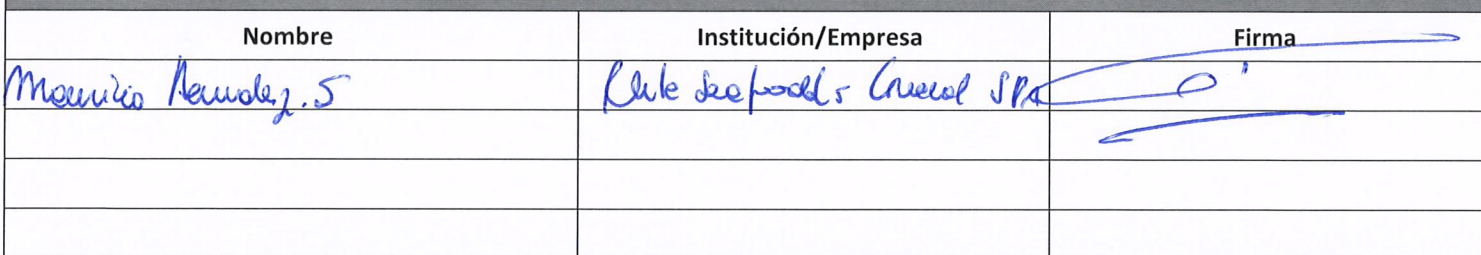 Nombre Institución/Empresa Firma
Mauricio Hernandez. S Chile Seafoods SPA